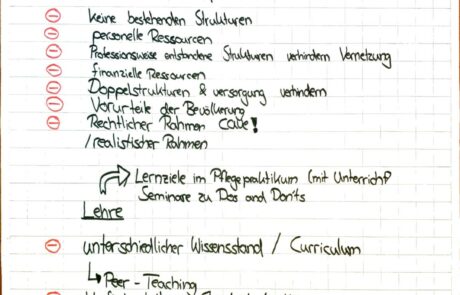 keine bestehenden Strukturen
personelle Ressourcen
Professionsweise entstandene Strukturen verhindern Vernetzung
finanzielle Ressourcen
Doppelstrukturen & versorgung verhindern
Vorurteile der Bevölkerung
Rechtlicher Rahmen !
/realistischer Rahmen
Lernziele im Pflegepraktikum (mit Unterricht?
Seminare zu Dos and Don'ts
Lehre
unterschiedlicher Wissensstand / Curriculum
Peer - Teaching